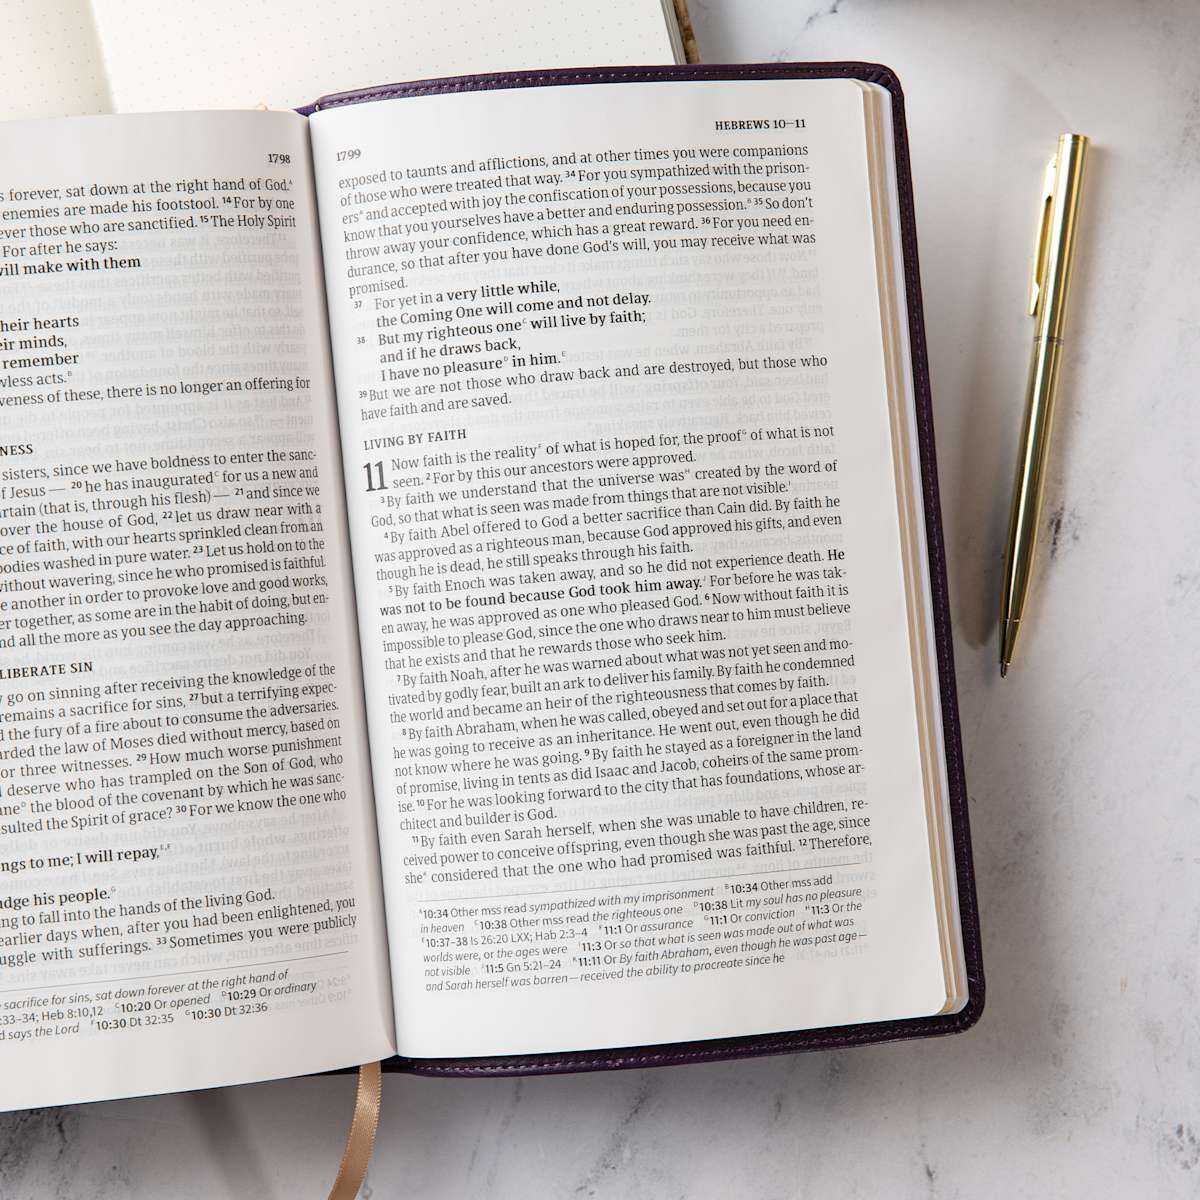 1798
s forever, sat down at the right hand of God.ᴬ
enemies are made his footstool. 14 For by one
ever those who are sanctified. 15 The Holy Spirit
For after he says:
will make with them
heir hearts
eir minds,
remember
wless acts.ᴮ
veness of these, there is no longer an offering for
NESS
sisters, since we have boldness to enter the sanc-
f Jesus — 20 he has inauguratedᶜ for us a new and
rtain (that is, through his flesh) — 21 and since we
over the house of God, 22 let us draw near with a
ce of faith, with our hearts sprinkled clean from an
bodies washed in pure water. 23 Let us hold on to the
without wavering, since he who promised is faithful.
e another in order to provoke love and good works,
er together, as some are in the habit of doing, but en-
nd all the more as you see the day approaching.
LIBERATE SIN
y go on sinning after receiving the knowledge of the
remains a sacrifice for sins, 27 but a terrifying expec-
d the fury of a fire about to consume the adversaries.
arded the law of Moses died without mercy, based on
or three witnesses. 29 How much worse punishment
deserve who has trampled on the Son of God, who
aneᴰ the blood of the covenant by which he was sanc-
sulted the Spirit of grace? 30 For we know the one who
ngs to me; I will repay,ᴱ,ꟳ
udge his people.ᴳ
ng to fall into the hands of the living God.
earlier days when, after you had been enlightened, you
uggle with sufferings. 33 Sometimes you were publicly
sacrifice for sins, sat down forever at the right hand of
:33–34; Heb 8:10,12 ᶜ10:20 Or opened ᴰ10:29 Or ordinary
d says the Lord ꟳ10:30 Dt 32:35 ᴳ10:30 Dt 32:36
1799
HEBREWS 10–11
exposed to taunts and afflictions, and at other times you were companions
of those who were treated that way. 34 For you sympathized with the prison-
ersᴬ and accepted with joy the confiscation of your possessions, because you
know that you yourselves have a better and enduring possession.ᴮ 35 So don't
throw away your confidence, which has a great reward. 36 For you need en-
durance, so that after you have done God's will, you may receive what was
promised.
37 For yet in a very little while,
the Coming One will come and not delay.
38 But my righteous oneᶜ will live by faith;
and if he draws back,
I have no pleasureᴰ in him.ᴱ
39 But we are not those who draw back and are destroyed, but those who
have faith and are saved.
LIVING BY FAITH
11 Now faith is the realityꟳ of what is hoped for, the proofᴳ of what is not
seen. 2 For by this our ancestors were approved.
3 By faith we understand that the universe wasᴴ created by the word of
God, so that what is seen was made from things that are not visible.ᴵ
4 By faith Abel offered to God a better sacrifice than Cain did. By faith he
was approved as a righteous man, because God approved his gifts, and even
though he is dead, he still speaks through his faith.
5 By faith Enoch was taken away, and so he did not experience death. He
was not to be found because God took him away.ᴶ For before he was tak-
en away, he was approved as one who pleased God. 6 Now without faith it is
impossible to please God, since the one who draws near to him must believe
that he exists and that he rewards those who seek him.
7 By faith Noah, after he was warned about what was not yet seen and mo-
tivated by godly fear, built an ark to deliver his family. By faith he condemned
the world and became an heir of the righteousness that comes by faith.
8 By faith Abraham, when he was called, obeyed and set out for a place that
he was going to receive as an inheritance. He went out, even though he did
not know where he was going. 9 By faith he stayed as a foreigner in the land
of promise, living in tents as did Isaac and Jacob, coheirs of the same prom-
ise. 10 For he was looking forward to the city that has foundations, whose ar-
chitect and builder is God.
11 By faith even Sarah herself, when she was unable to have children, re-
ceived power to conceive offspring, even though she was past the age, since
sheᴷ considered that the one who had promised was faithful. 12 Therefore,
ᴬ10:34 Other mss read sympathized with my imprisonment ᴮ10:34 Other mss add
in heaven ᶜ10:38 Other mss read the righteous one ᴰ10:38 Lit my soul has no pleasure
ᴱ10:37–38 Is 26:20 LXX; Hab 2:3–4 ꟳ11:1 Or assurance ᴳ11:1 Or conviction ᴴ11:3 Or the
worlds were, or the ages were ᴵ11:3 Or so that what is seen was made out of what was
not visible ᴶ11:5 Gn 5:21–24 ᴷ11:11 Or By faith Abraham, even though he was past age—
and Sarah herself was barren—received the ability to procreate since he